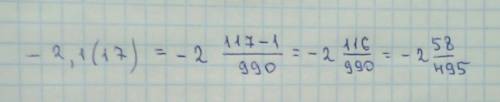 - 2,1(17) = - 2 \frac{117-1}{990} = - 2 \frac{116}{990} = - 2 \frac{58}{495}